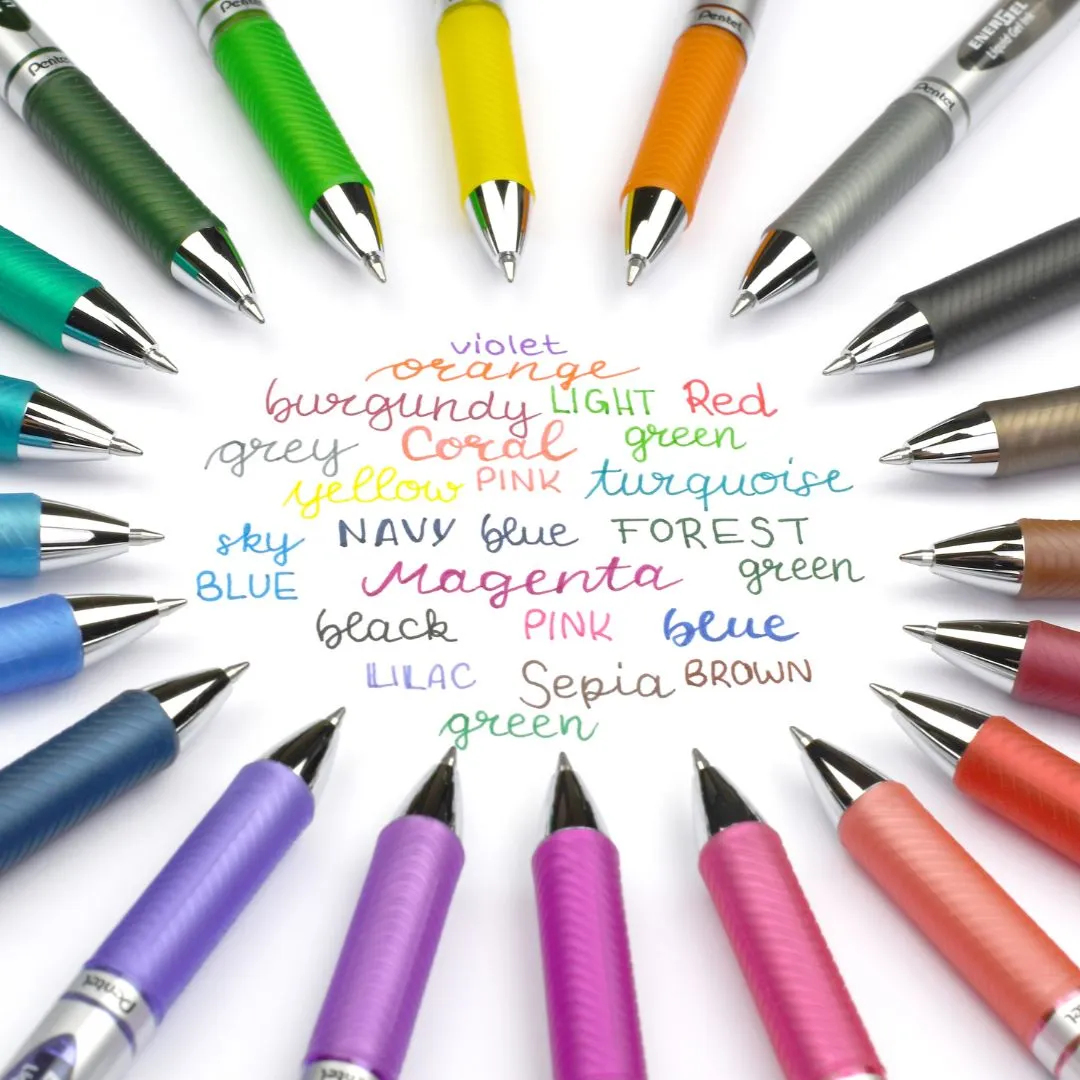 Pentel
Pentel
Pentel
Pentel
ENERGEL
Liquid Gel Ink
violet
orange
burgundy LIGHT Red
grey Coral green
yellow PINK turquoise
sky NAVY blue FOREST
BLUE Magenta green
black PINK blue
LILAC Sepia BROWN
green
Pentel
Pentel
Pentel